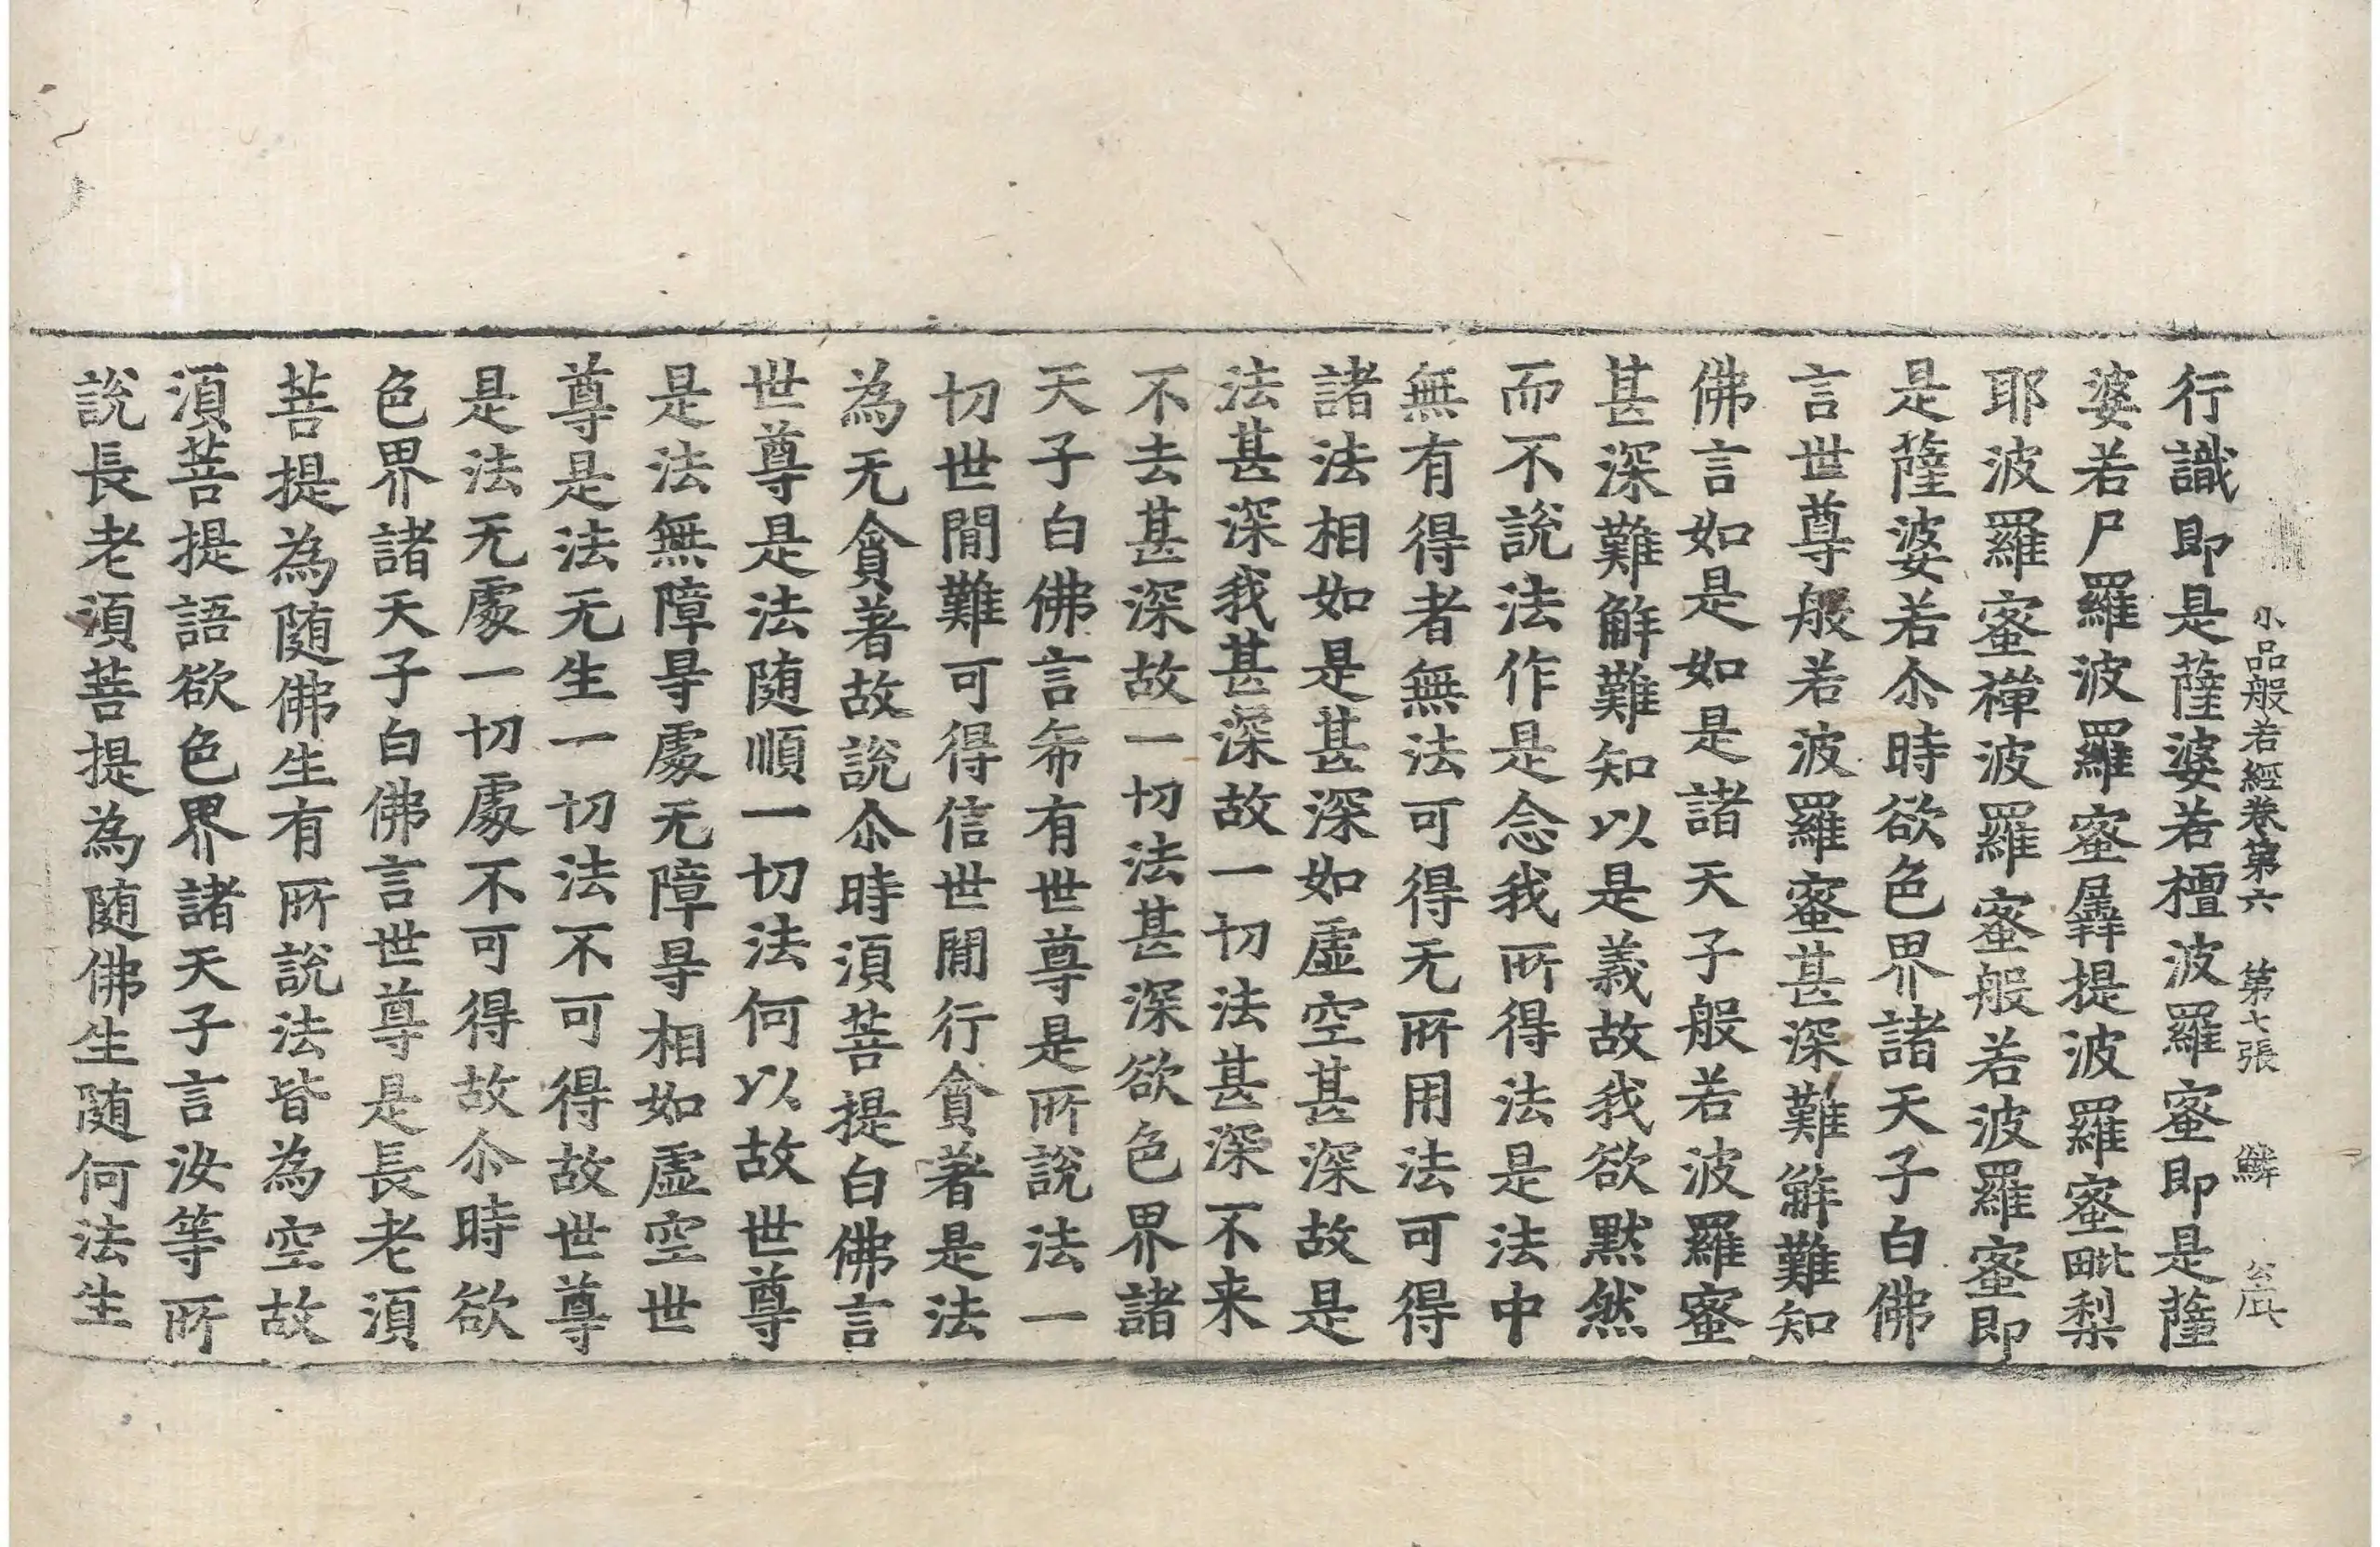 小品般若經卷第六 第七張 鱗 公底
行識即是薩婆若檀波羅蜜即是薩
婆若尸羅波羅蜜羼提波羅蜜毗梨
耶波羅蜜禪波羅蜜般若波羅蜜即
是薩婆若尒時欲色界諸天子白佛
言世尊般若波羅蜜甚深難解難知
佛言如是如是諸天子般若波羅蜜
甚深難解難知以是義故我欲默然
而不說法作是念我所得法是法中
無有得者無法可得无所用法可得
諸法相如是甚深如虛空甚深故是
法甚深我甚深故一切法甚深不来
不去甚深故一切法甚深欲色界諸
天子白佛言希有世尊是所說法一
切世間難可得信世間行貪著是法
為无貪著故說尒時湏菩提白佛言
世尊是法随順一切法何以故世尊
是法無障㝵處无障㝵相如虛空世
尊是法无生一切法不可得故世尊
是法无處一切處不可得故尒時欲
色界諸天子白佛言世尊是長老湏
菩提為随佛生有所說法皆為空故
湏菩提語欲色界諸天子言汝等所
說長老湏菩提為随佛生随何法生